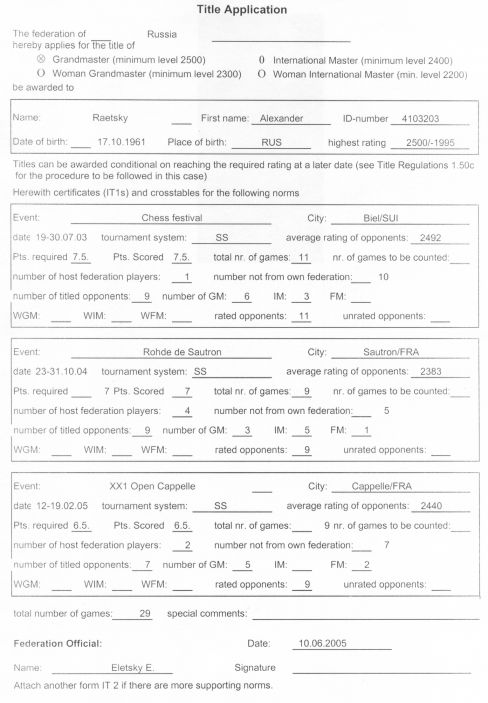 Title Application
The federation of Russia
hereby applies for the title of
Grandmaster (minimum level 2500) International Master (minimum level 2400)
Woman Grandmaster (minimum level 2300) Woman International Master (min. level 2200)
be awarded to
Name: Raetsky First name: Alexander ID-number 4103203
Date of birth: 17.10.1961 Place of birth: RUS highest rating 2500/-1995
Titles can be awarded conditional on reaching the required rating at a later date (see Title Regulations 1.50c
for the procedure to be followed in this case)
Herewith certificates (IT1s) and crosstables for the following norms
Event: Chess festival City: Biel/SUI
date 19-30.07.03 tournament system: SS average rating of opponents: 2492
Pts. required 7.5. Pts. Scored 7.5. total nr. of games: 11 nr. of games to be counted:
number of host federation players: 1 number not from own federation: 10
number of titled opponents: 9 number of GM: 6 IM: 3 FM:
WGM: WIM: WFM: rated opponents: 11 unrated opponents:
Event: Rohde de Sautron City: Sautron/FRA
date 23-31.10.04 tournament system: SS average rating of opponents: 2383
Pts. required 7 Pts. Scored 7 total nr. of games: 9 nr. of games to be counted:
number of host federation players: 4 number not from own federation: 5
number of titled opponents: 9 number of GM: 3 IM: 5 FM: 1
WGM: WIM: WFM: rated opponents: 9 unrated opponents:
Event: XX1 Open Cappelle City: Cappelle/FRA
date 12-19.02.05 tournament system: SS average rating of opponents: 2440
Pts. required 6.5. Pts. Scored 6.5. total nr. of games: 9 nr. of games to be counted:
number of host federation players: 2 number not from own federation: 7
number of titled opponents: 7 number of GM: 5 IM: FM: 2
WGM: WIM: WFM: rated opponents: 9 unrated opponents:
total number of games: 29 special comments:
Federation Official: Date: 10.06.2005
Name: Eletsky E. Signature
Attach another form IT 2 if there are more supporting norms.